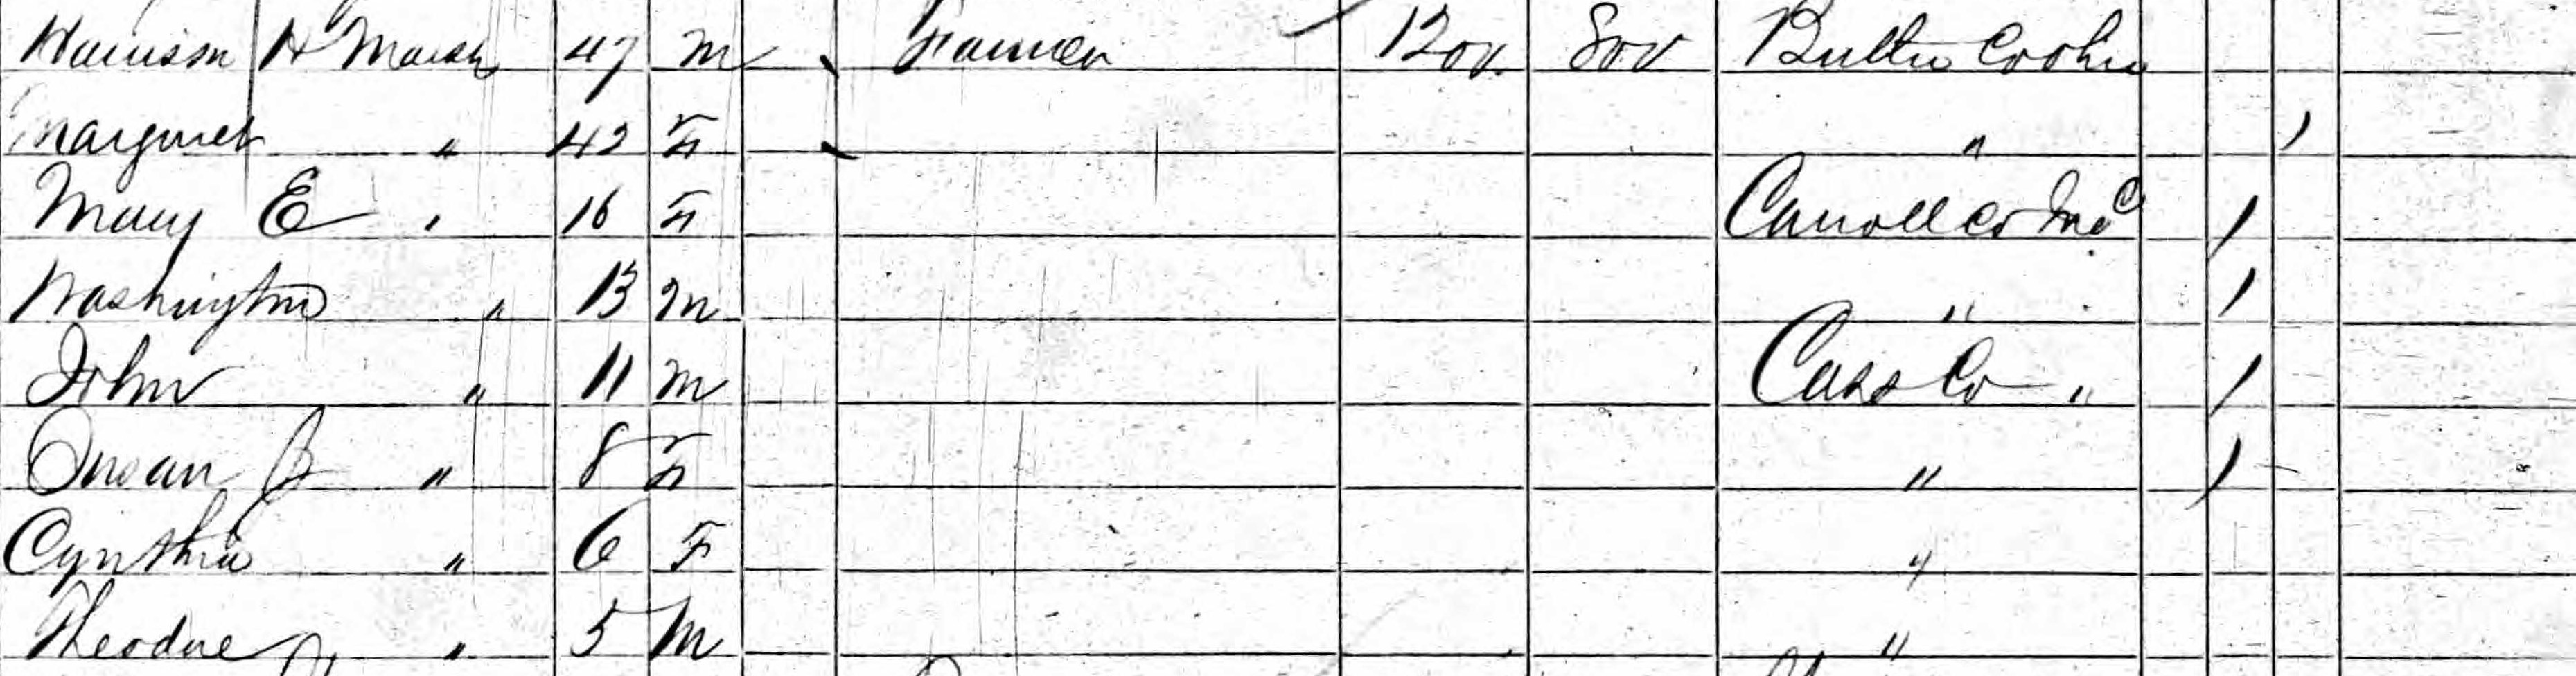 Harrison H Marsh 47 m Farmer 1200 800 Butler Co Ohio
Margaret " 42 F "
Mary E " 16 F Carroll Co Ind
Washington " 13 m "
John " 11 m Cass Co "
Susan B " 8 F "
Cynthia " 6 F "
Theodore " 5 m "